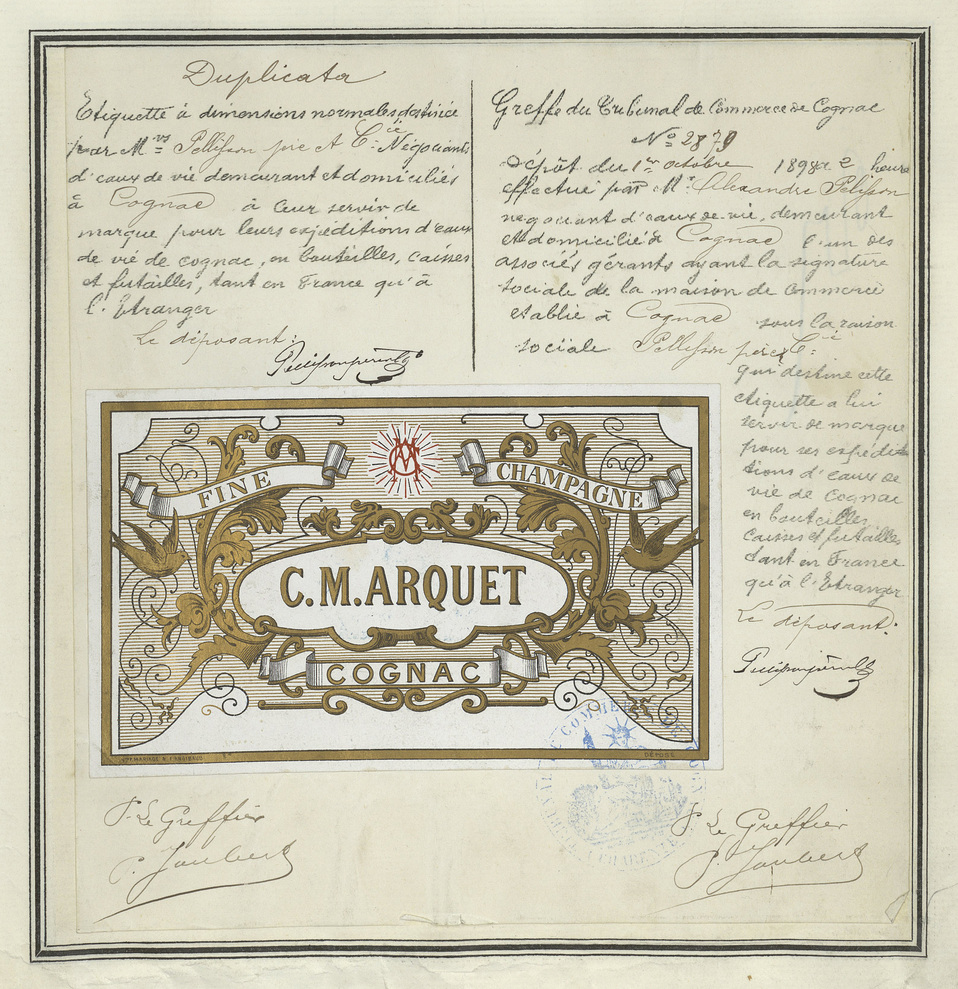 Duplicata
Etiquette à dimensions normales destinée
par M.rs Pellisson père et Cie Négociants
d'eaux de vie demeurant et domiciliés
à Cognac à leur servir de
marque pour leurs expéditions d'eaux
de vie de cognac, en bouteilles, caisses
et futailles, tant en France qu'à
l'Etranger
Le déposant:
Pellisson père & Co
Greffe du Tribunal de Commerce de Cognac
No 2879
Dépôt du 1er octobre 1898 à 2 heures
effectué par Mr. Alexandre Pellisson
négociant d'eaux-de-vie, demeurant
et domicilié à Cognac l'un des
associés gérants ayant la signature
sociale de la maison de Commerce
établie à Cognac sous la raison
sociale Pellisson père & Cie
qui destine cette
étiquette a lui
servir de marque
pour ses expédi-
tions d'eaux de
vie de Cognac
en bouteilles
caisses et futailles
tant en France
qu'à l'Etranger
Le déposant:
Pellisson père & Co
FINE
CHAMPAGNE
C.M.ARQUET
COGNAC
DÉPOSÉ
COMMERCE
CHARENTE
P. Le Greffier
P. Joubert
P. Le Greffier
P. Joubert